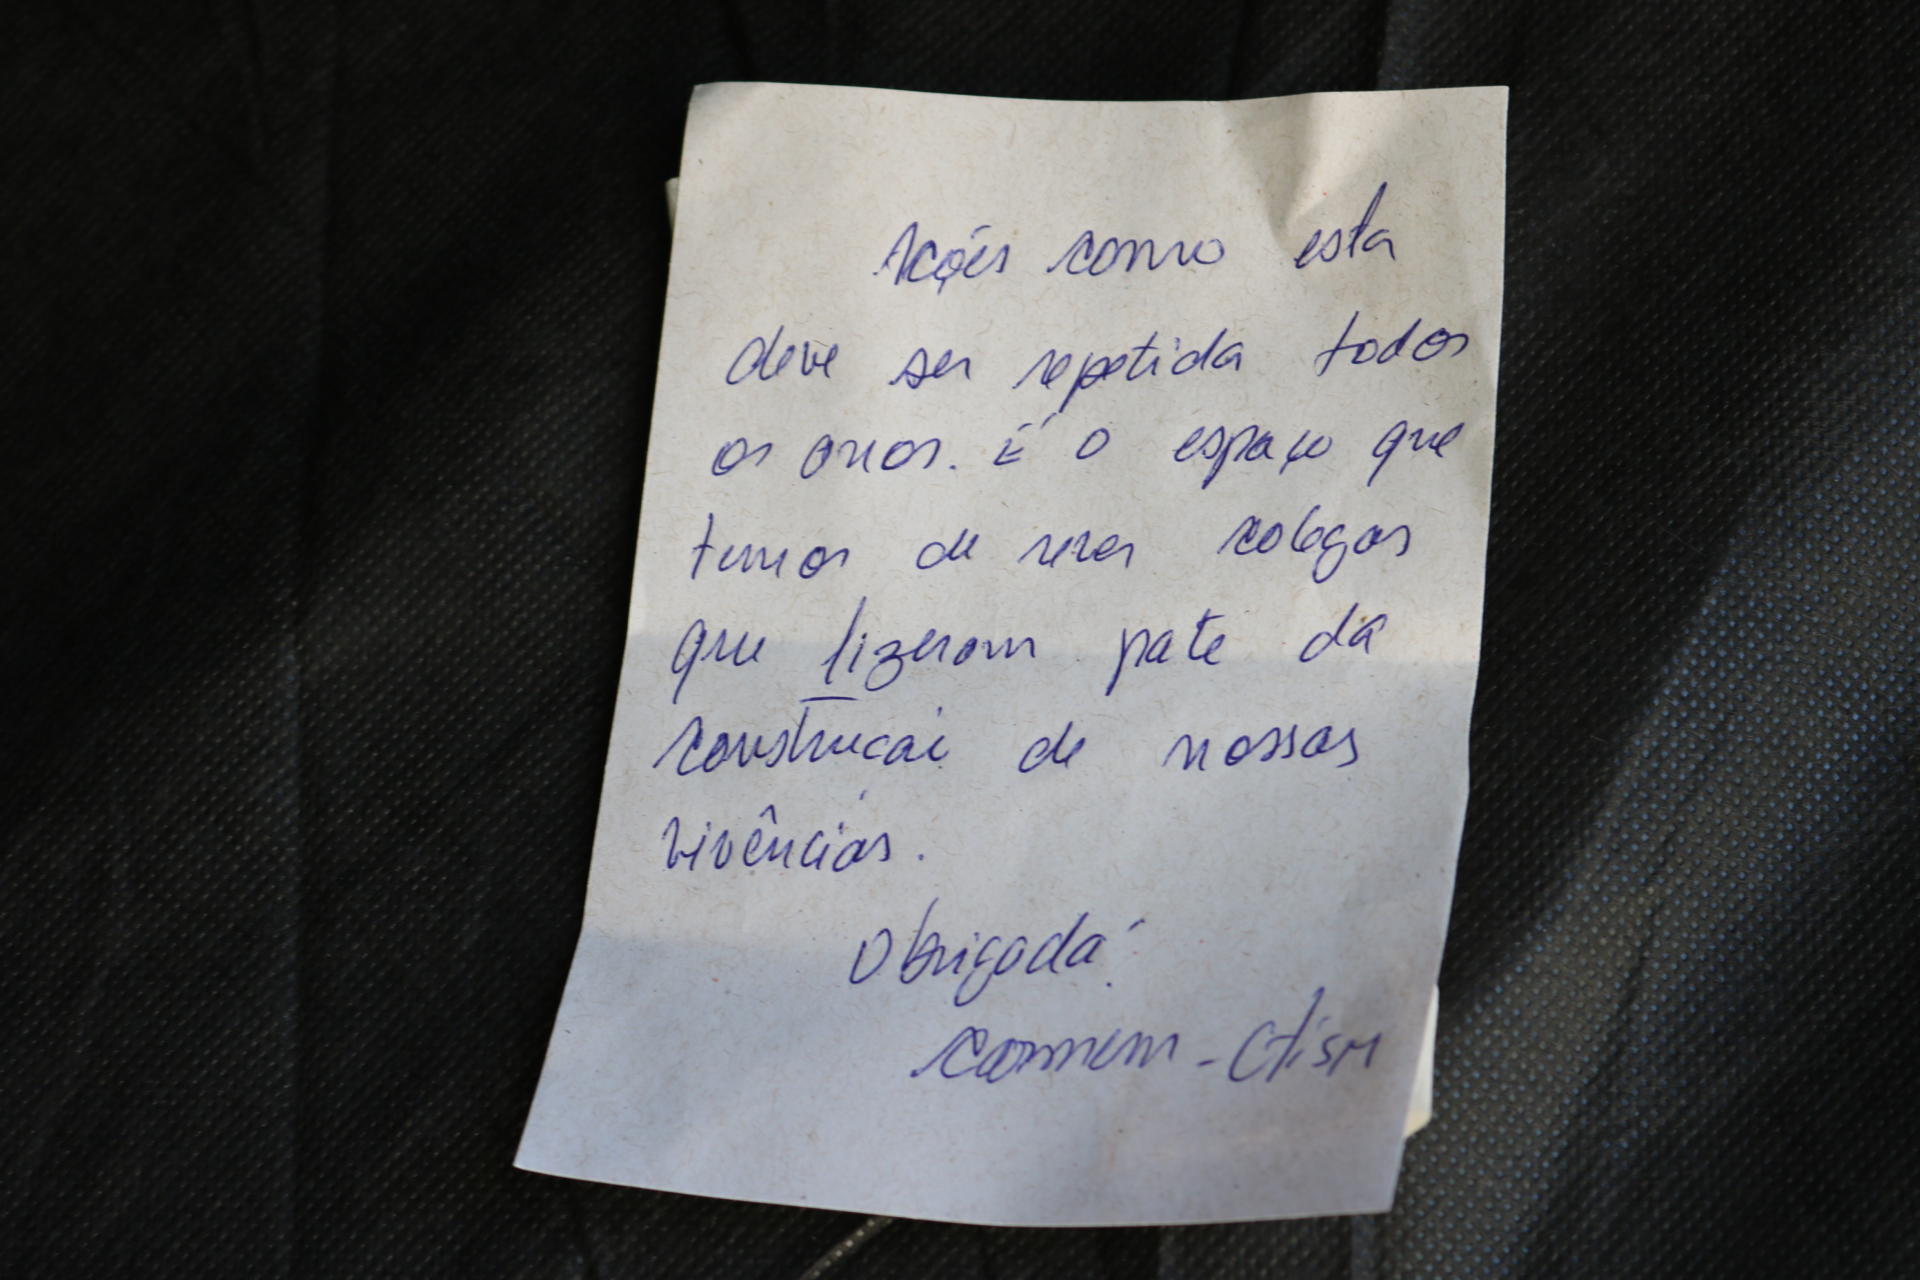 Ações como esta
deve ser repetida todos
os anos. É o espaço que
temos de rever colegas
que fizeram pate da
construcai de nossas
vivências.
Obrigada!
Carmem - CTISM